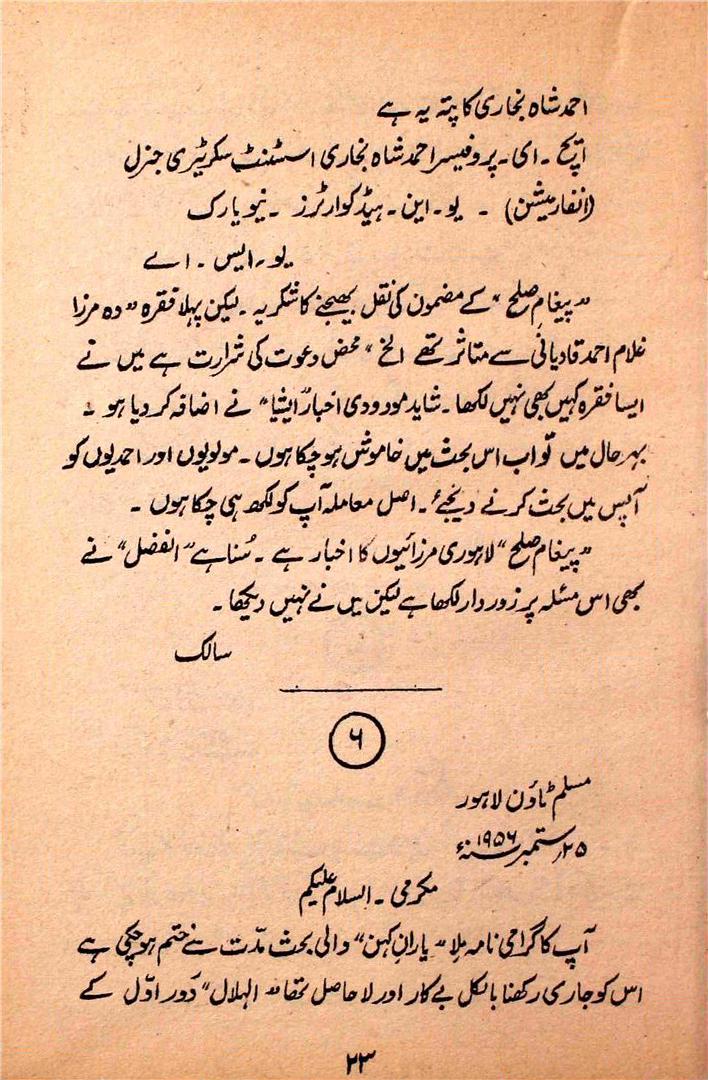 احمد شاہ بخاری کا پتہ یہ ہے
ایچ ۔ ای ۔ پروفیسر احمد شاہ بخاری اسسٹنٹ سکریٹری جنرل
(انفارمیشن) ۔ یو ۔ این ۔ ہیڈ کوارٹرز ۔ نیویارک
یو ۔ ایس ۔ اے
”پیغام صلح“ کے مضمون کی نقل بھیجنے کا شکریہ ۔ لیکن پہلا فقرہ ”وہ مرزا
غلام احمد قادیانی سے متاثر تھے الخ“ محض دعوت کی شرارت ہے میں نے
ایسا فقرہ کہیں بھی نہیں لکھا ۔ شاید مودودی اخبار ”ایشیا“ نے اضافہ کر دیا ہو ۔
بہرحال میں تو اب اس بحث میں خاموش ہو چکا ہوں ۔ مولویوں اور احمدیوں کو
آپس میں بحث کرنے دیجئے ۔ اصل معاملہ آپ کو لکھ ہی چکا ہوں ۔
”پیغام صلح“ لاہوری مرزائیوں کا اخبار ہے ۔ سُنا ہے ”الفضل“ نے
بھی اس مسئلہ پر زور دار لکھا ہے لیکن میں نے نہیں دیکھا ۔
سالک
۶
مسلم ٹاؤن لاہور
۲۵ ستمبر سنہ ۱۹۵۶ء
مکرمی ۔ السلام علیکم
آپ کا گرامی نامہ مِلا ”یارانِ کہن“ والی بحث مدّت سے ختم ہو چکی ہے
اس کو جاری رکھنا بالکل بے کار اور لا حاصل تھا ”الہلال“ دَور اوّل کے
۲۳